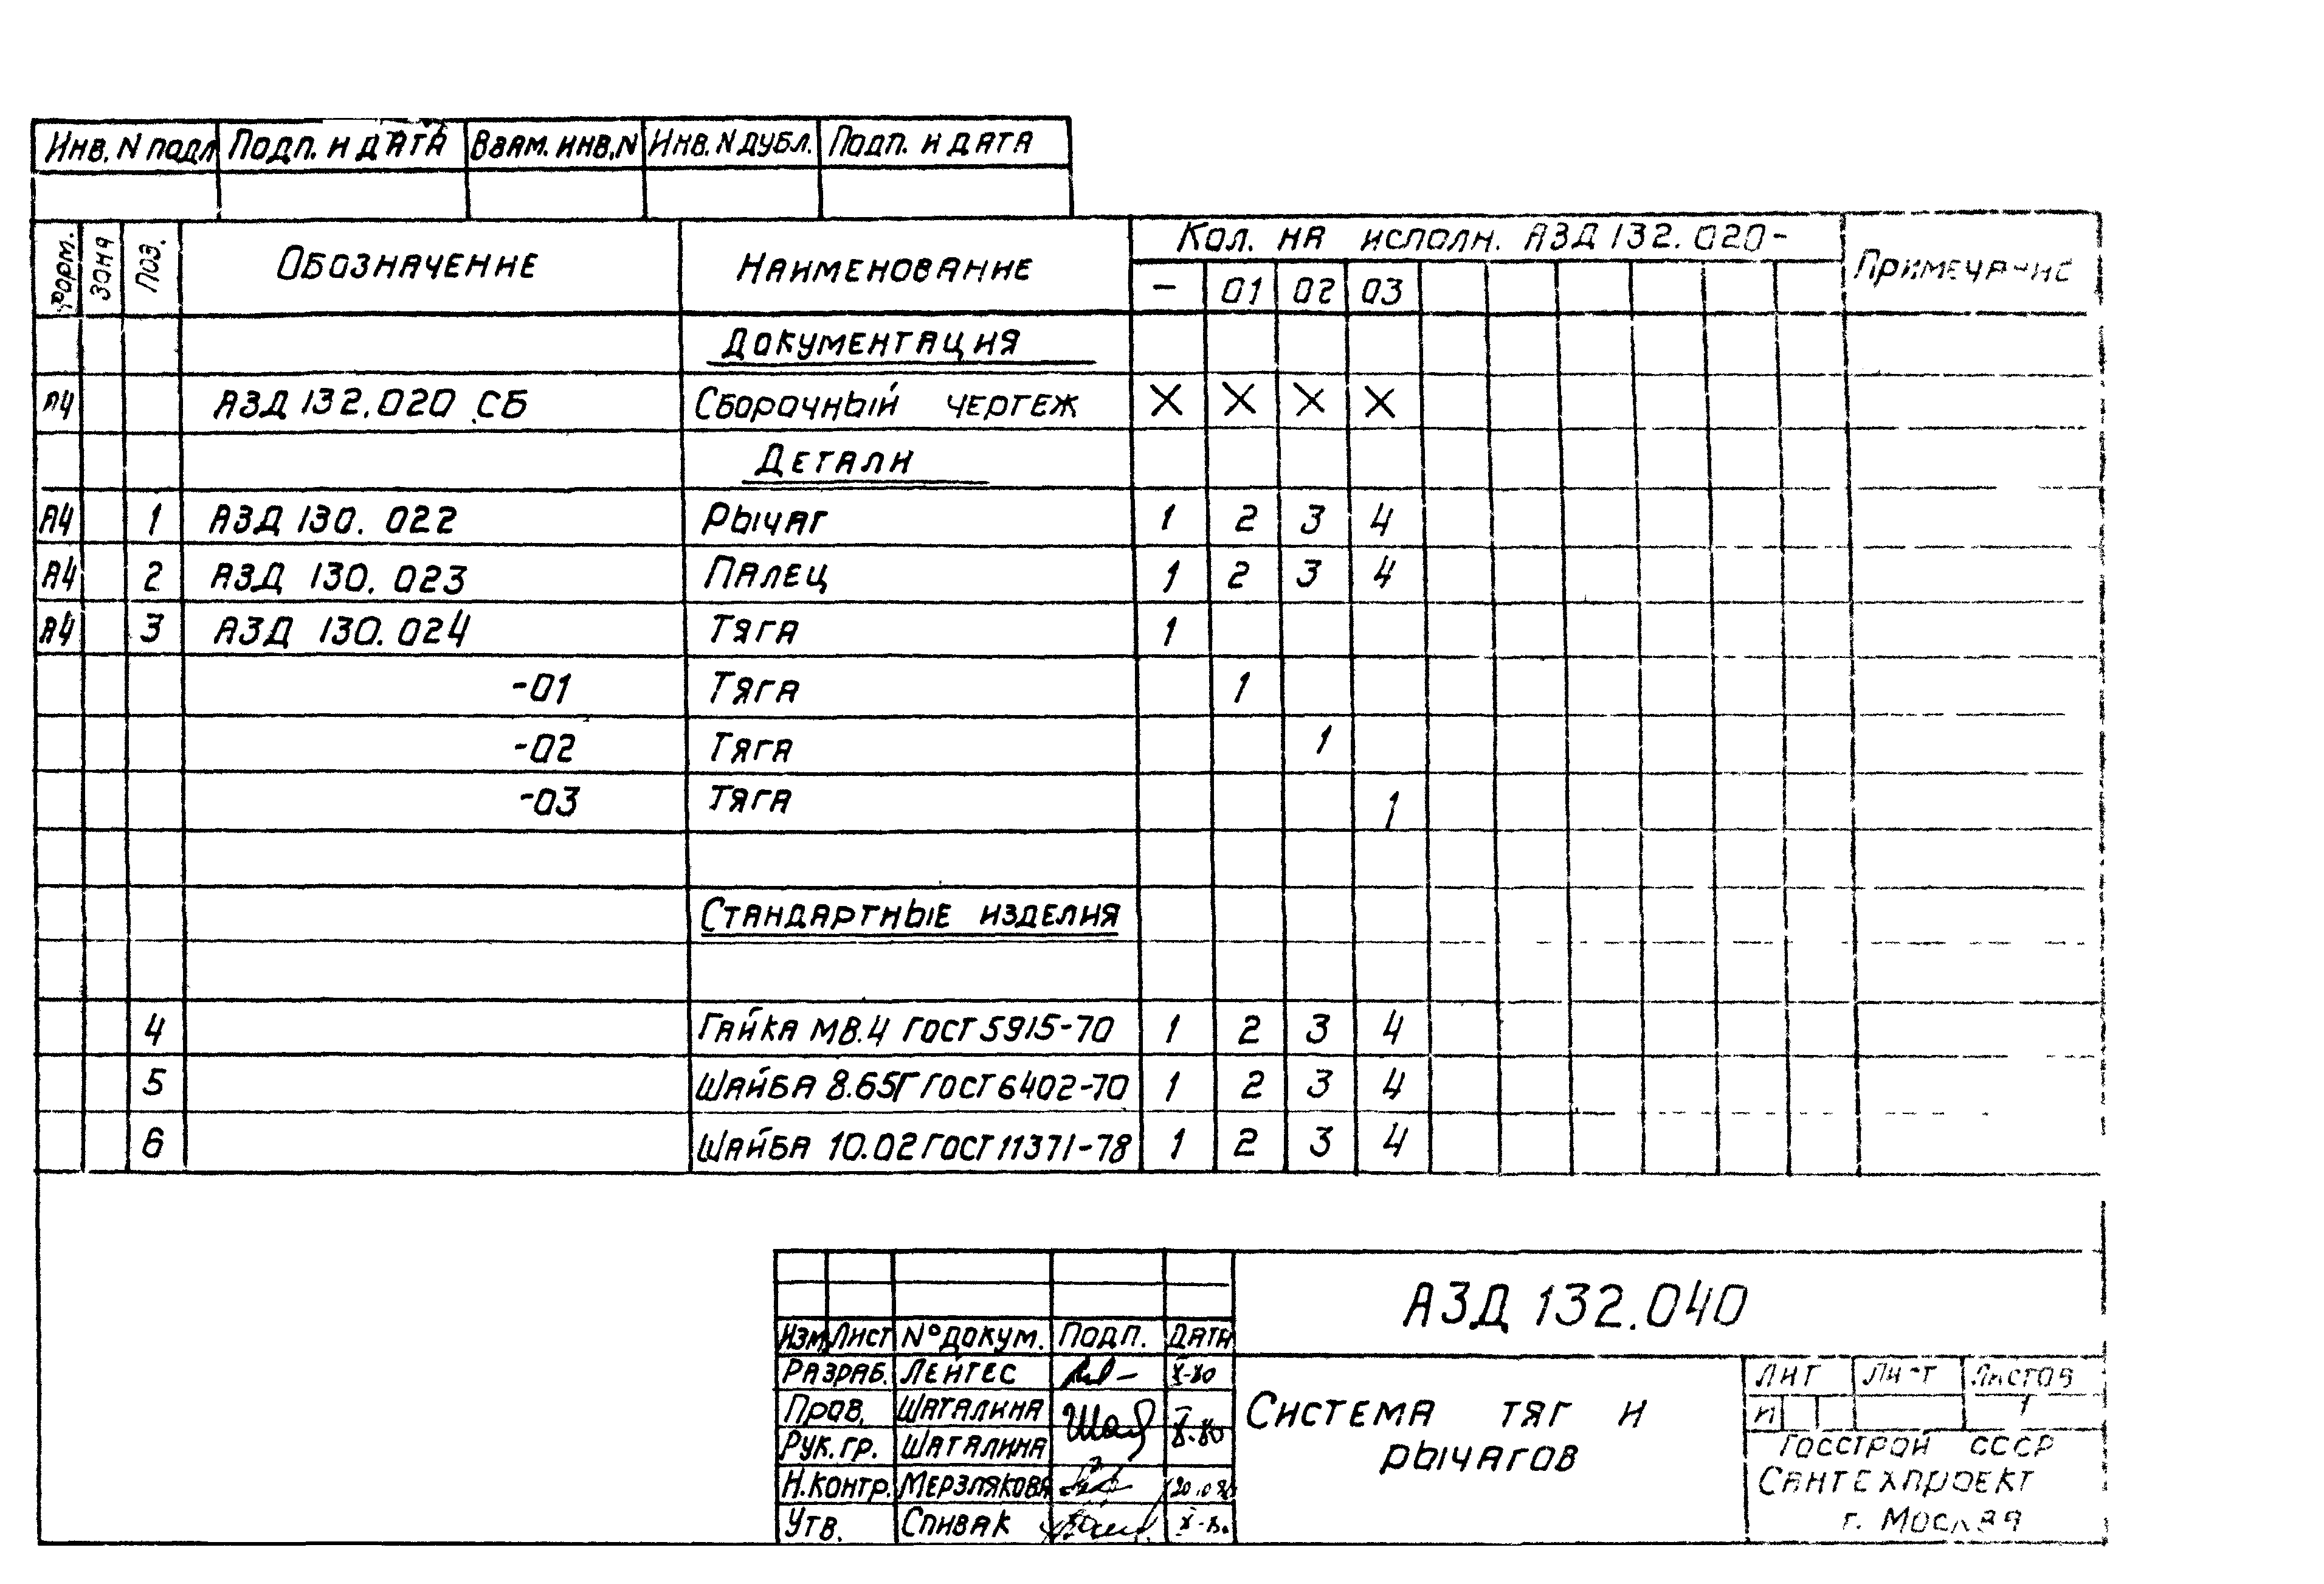 Инв. N подл Подп. и дата Взам. инв. N Инв. N дубл. Подп. и дата
Форм. Зона Поз. Обозначение Наименование Кол. на исполн. АЗД 132.020- Примечание
- 01 02 03
Документация
А4 АЗД 132.020 СБ Сборочный чертеж X X X X
Детали
А4 1 АЗД 130.022 Рычаг 1 2 3 4
А4 2 АЗД 130.023 Палец 1 2 3 4
А4 3 АЗД 130.024 Тяга 1
-01 Тяга 1
-02 Тяга 1
-03 Тяга 1
Стандартные изделия
4 Гайка М8.4 ГОСТ 5915-70 1 2 3 4
5 Шайба 8.65Г ГОСТ 6402-70 1 2 3 4
6 Шайба 10.02 ГОСТ 11371-78 1 2 3 4
АЗД 132.040
Изм Лист N° докум. Подп. Дата
Разраб. Лейтес X-80
Пров. Шаталина X.80
Рук. гр. Шаталина
Н. контр. Мерзлякова
Утв. Спивак
Система тяг и
рычагов
Лит Лист Листов
И 1
Госстрой СССР
Сантехпроект
г. Москва